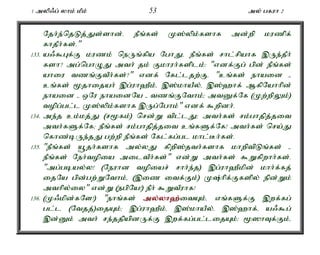 1 அலிஃப் லாம் மீம் 53 அல் பகரா 2
தேர்ந்தெடுத்துள்ளான். நீங்கள் முஸ்லிம்களாக அன்றி மரணிக்
காதீர்கள்."
133. யஃகூபுக்கு மரணம் நெருங்கிய போது, நீங்கள் சாட்சியாக இருந்தீர்
களா? அப்பொழுது அவர் தம் குமாரர்களிடம்: "எனக்குப் பின் நீங்கள்
யாரை வணங்குவீர்கள்?" எனக் கேட்டதற்கு, "உங்கள் நாயனை -
உங்கள் மூதாதையர் இப்ராஹீம், இஸ்மாயீல், இஸ்ஹாக் ஆகியோரின்
நாயனை - ஒரே நாயனையே - வணங்குவோம்; அவனுக்கே (முற்றிலும்)
வழிப்பட்ட முஸ்லிம்களாக இருப்போம்" எனக் கூறினர்.
134. அந்த உம்மத்து (சமூகம்) சென்று விட்டது; அவர்கள் சம்பாதித்தவை
அவர்களுக்கே; நீங்கள் சம்பாதித்தவை உங்களுக்கே; அவர்கள் செய்து
கொண்டிருந்தது பற்றி நீங்கள் கேட்கப்பட மாட்டீர்கள்.
135. "நீங்கள் யூதர்களாக அல்லது கிறிஸ்தவர்களாக மாறிவிடுங்கள் -
நீங்கள் நேர்வழியை அடைவீர்கள்" என்று அவர்கள் கூறுகிறார்கள்.
"அப்படியல்ல! (நேரான வழியைச் சார்ந்த) இப்ராஹீமின் மார்க்கத்
தையே பின்பற்றுவோம், (இணை வைக்கும்) முஷ்ரிக்குகளில் நின்றும்
அவரில்லை" என்று (நபியே!) நீர் கூறுவீராக!
136. (முஃமின்களே!) "நாங்கள் அல்லாஹ்வையும், எங்களுக்கு இறக்கப்
பட்ட (வேதத்)தையும்; இப்ராஹீம், இஸ்மாயீல், இஸ்ஹாக், யஃகூப்
இன்னும் அவர் சந்ததியினருக்கு இறக்கப்பட்டதையும்; மூஸாவுக்கும்,